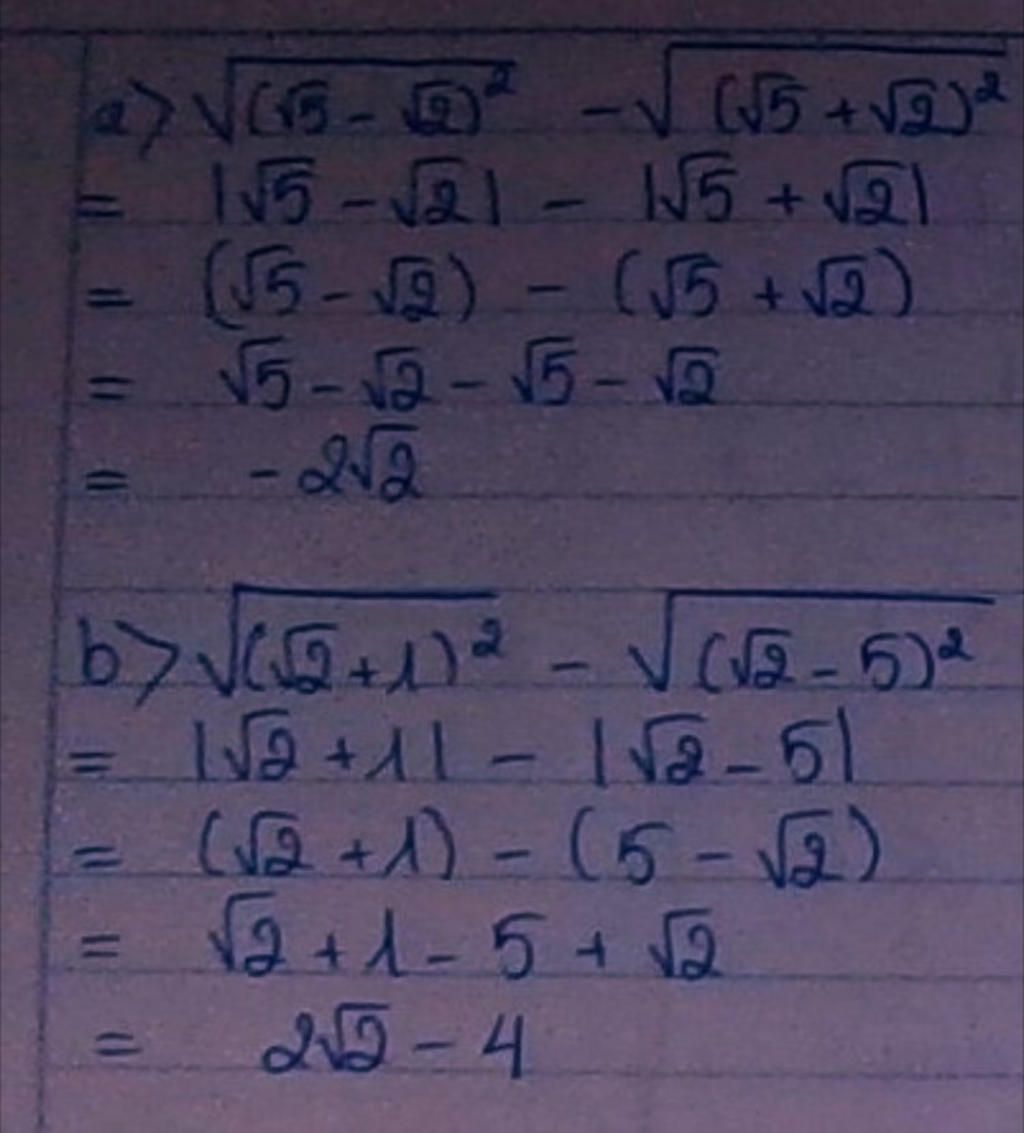 a> √(√5 - √2)² - √(√5 + √2)²
= |√5 - √2| - |√5 + √2|
= (√5 - √2) - (√5 + √2)
= √5 - √2 - √5 - √2
= -2√2
b> √(√2 + 1)² - √(√2 - 5)²
= |√2 + 1| - |√2 - 5|
= (√2 + 1) - (5 - √2)
= √2 + 1 - 5 + √2
= 2√2 - 4